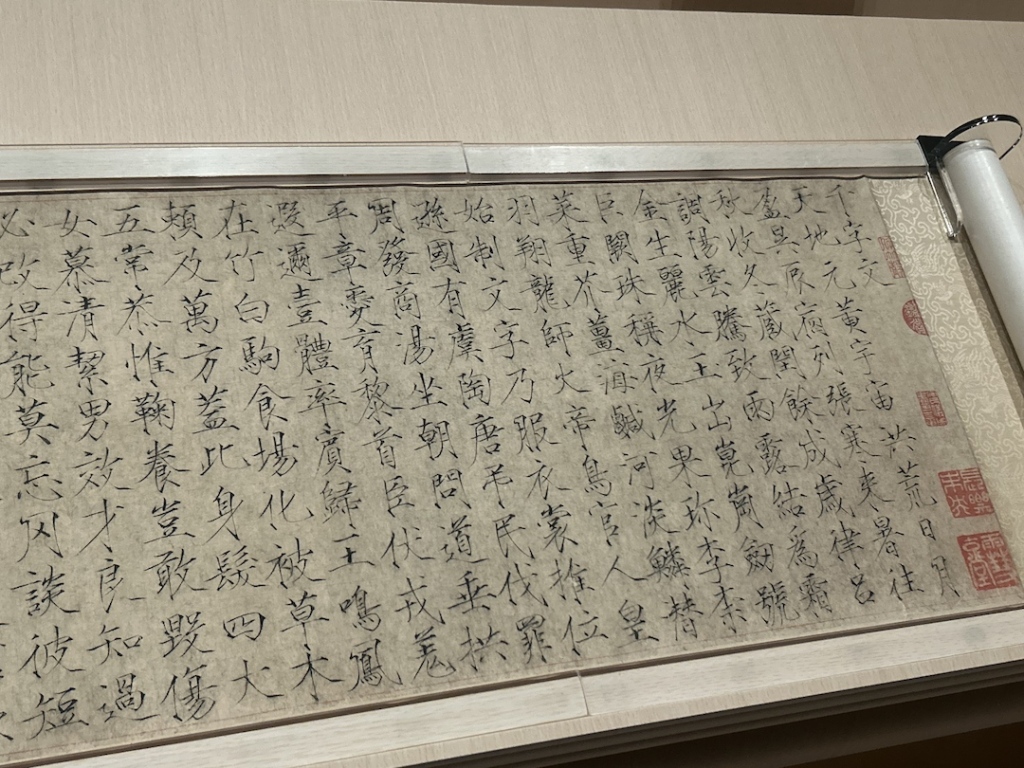 千字文
天地元黃宇宙洪荒日月
盈昃辰宿列張寒來暑往
秋收冬藏閏餘成歲律呂
調陽雲騰致雨露結為霜
金生麗水玉出崑崗劒號
巨闕珠稱夜光果珍李柰
菜重芥薑海鹹河淡鱗潛
羽翔龍師火帝鳥官人皇
始制文字乃服衣裳推位
遜國有虞陶唐弔民伐罪
周發商湯坐朝問道垂拱
平章愛育黎首臣伏戎羌
遐邇壹體率賓歸王鳴鳳
在竹白駒食場化被草木
賴及萬方蓋此身髮四大
五常恭惟鞠養豈敢毀傷
女慕清絜男效才良知過
必改得能莫忘罔談彼短